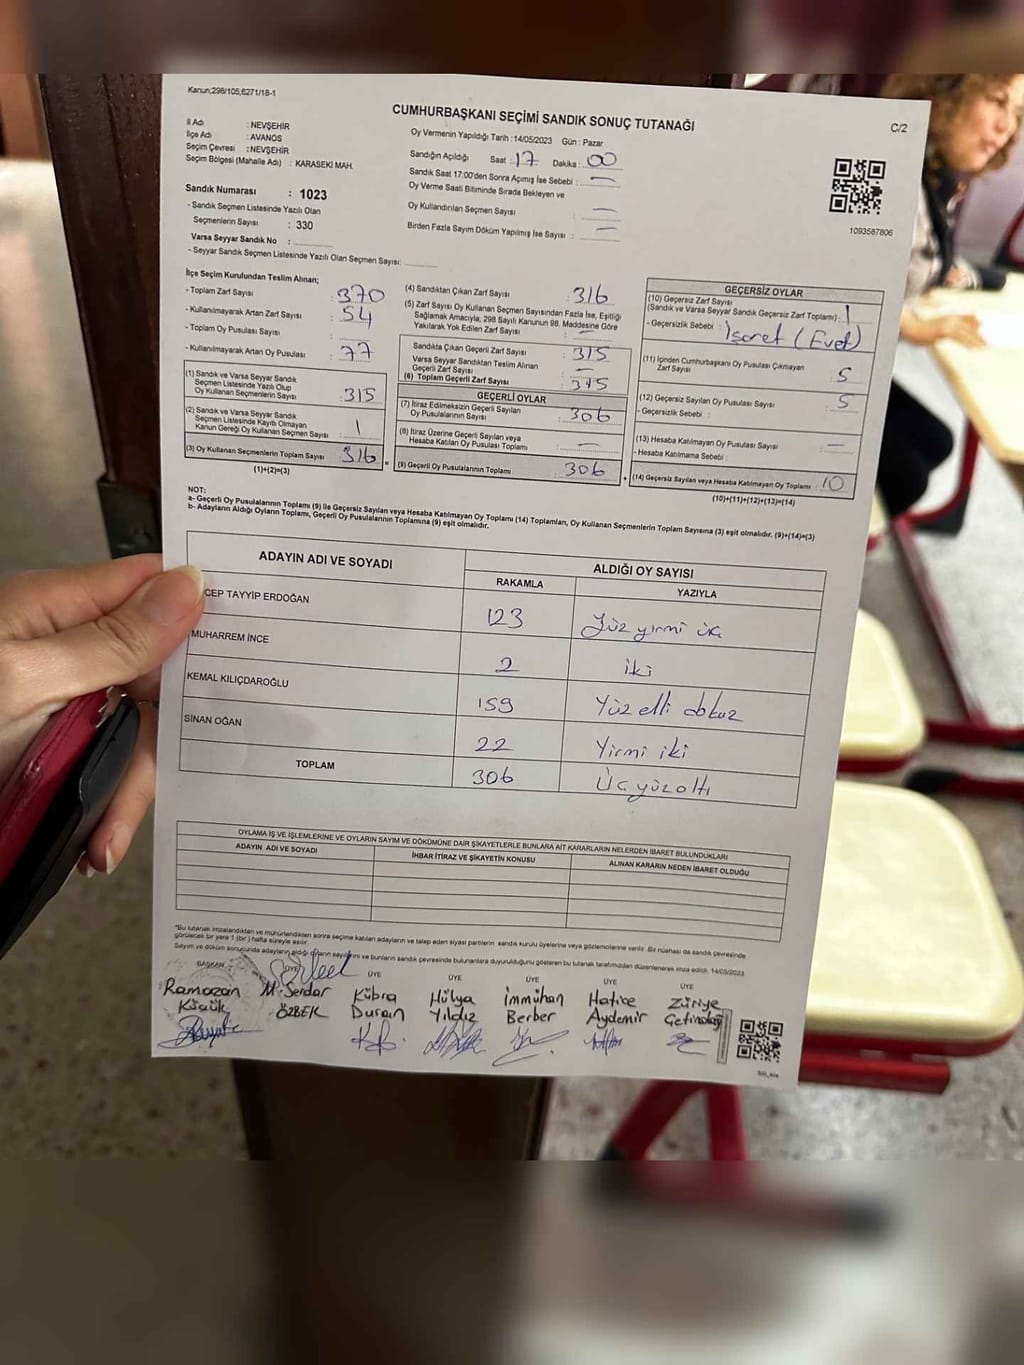 Kanun;298/105,6271/18-1
CUMHURBAŞKANI SEÇİMİ SANDIK SONUÇ TUTANAĞI
C/2
İl Adı : NEVŞEHİR
İlçe Adı : AVANOS
Seçim Çevresi : NEVŞEHİR
Seçim Bölgesi (Mahalle Adı) : KARASEKİ MAH.
Sandık Numarası : 1023
- Sandık Seçmen Listesinde Yazılı Olan
Seçmenlerin Sayısı : 330
Varsa Seyyar Sandık No :
- Seyyar Sandık Seçmen Listesinde Yazılı Olan Seçmen Sayısı:
Oy Vermenin Yapıldığı Tarih :14/05/2023 Gün : Pazar
Sandığın Açıldığı Saat : 17 Dakika : 00
Sandık Saat 17:00'den Sonra Açımış İse Sebebi : —
Oy Verme Saati Bitiminde Sırada Bekleyen ve
Oy Kullandırılan Seçmen Sayısı : —
Birden Fazla Sayım Döküm Yapılmış İse Sayısı : —
1093587806
İlçe Seçim Kurulundan Teslim Alınan;
- Toplam Zarf Sayısı : 370
- Kullanılmayarak Artan Zarf Sayısı : 54
- Toplam Oy Pusulası Sayısı :
- Kullanılmayarak Artan Oy Pusulası : 77
(1) Sandık ve Varsa Seyyar Sandık
Seçmen Listesinde Yazılı Olup
Oy Kullanan Seçmenlerin Sayısı : 315
(2) Sandık ve Varsa Seyyar Sandık
Seçmen Listesinde Kayıtlı Olmayan
Kanun Gereği Oy Kullanan Seçmen Sayısı : 1
(3) Oy Kullanan Seçmenlerin Toplam Sayısı : 316
(1)+(2)=(3)
(4) Sandıktan Çıkan Zarf Sayısı : 316
(5) Zarf Sayısı Oy Kullanan Seçmen Sayısından Fazla İse, Eşitliği
Sağlamak Amacıyla, 298 Sayılı Kanunun 98. Maddesine Göre
Yakılarak Yok Edilen Zarf Sayısı : —
Sandıkta Çıkan Geçerli Zarf Sayısı : 315
Varsa Seyyar Sandıktan Teslim Alınan
Geçerli Zarf Sayısı : —
(6) Toplam Geçerli Zarf Sayısı : 315
GEÇERLİ OYLAR
(7) İtiraz Edilmeksizin Geçerli Sayılan
Oy Pusulalarının Sayısı : 306
(8) İtiraz Üzerine Geçerli Sayılan veya
Hesaba Katılan Oy Pusulası Toplamı : —
(9) Geçerli Oy Pusulalarının Toplamı : 306
GEÇERSİZ OYLAR
(10) Geçersiz Zarf Sayısı
(Sandık ve Varsa Seyyar Sandık Geçersiz Zarf Toplamı) : 1
- Geçersizlik Sebebi : İşaret (Evet)
(11) İçinden Cumhurbaşkanı Oy Pusulası Çıkmayan
Zarf Sayısı : 5
(12) Geçersiz Sayılan Oy Pusulası Sayısı : 5
- Geçersizlik Sebebi :
(13) Hesaba Katılmayan Oy Pusulası Sayısı : —
- Hesaba Katılmama Sebebi :
(14) Geçersiz Sayılan veya Hesaba Katılmayan Oy Toplamı : 10
(10)+(11)+(12)+(13)=(14)
NOT:
a- Geçerli Oy Pusulalarının Toplamı (9) ile Geçersiz Sayılan veya Hesaba Katılmayan Oy Toplamı (14) Toplamları, Oy Kullanan Seçmenlerin Toplam Sayısına (3) eşit olmalıdır. (9)+(14)=(3)
b- Adayların Aldığı Oyların Toplamı, Geçerli Oy Pusulalarının Toplamına (9) eşit olmalıdır.
ADAYIN ADI VE SOYADI ALDIĞI OY SAYISI
RAKAMLA YAZIYLA
CEP TAYYİP ERDOĞAN 123 Yüz yirmi üç
MUHARREM İNCE 2 iki
KEMAL KILIÇDAROĞLU 159 Yüz elli dokuz
SİNAN OĞAN 22 Yirmi iki
TOPLAM 306 Üç yüz altı
OYLAMA İŞ VE İŞLEMLERİNE VE OYLARIN SAYIM VE DÖKÜMÜNE DAİR ŞİKAYETLERLE BUNLARA AİT KARARLARIN NELERDEN İBARET BULUNDUKLARI
ADAYIN ADI VE SOYADI İHBAR İTİRAZ VE ŞİKAYETİN KONUSU ALINAN KARARIN NEDEN İBARET OLDUĞU
*Bu tutanak imzalandıktan ve mühürlendikten sonra seçime katılan adayların ve talep eden siyasi partilerin sandık kurulu üyelerine veya gözlemcilerine verilir. Bir nüshası da sandık çevresinde
görülecek bir yere 1 (bir) hafta süreyle asılır.
Sayım ve döküm sonucunda adayların aldığı oyların sayılarını ve bunların sandık çevresinde bulunanlara duyurulduğunu gösteren bu tutanak tarafımızdan düzenlenerek imza edildi. 14/05/2023
BAŞKAN ÜYE ÜYE ÜYE ÜYE ÜYE ÜYE
Ramazan M. Serdar Kübra Hülya İmmühan Hatice Züriye
Küçük ÖZBEK Duran Yıldız Berber Aydemir Çetindağ